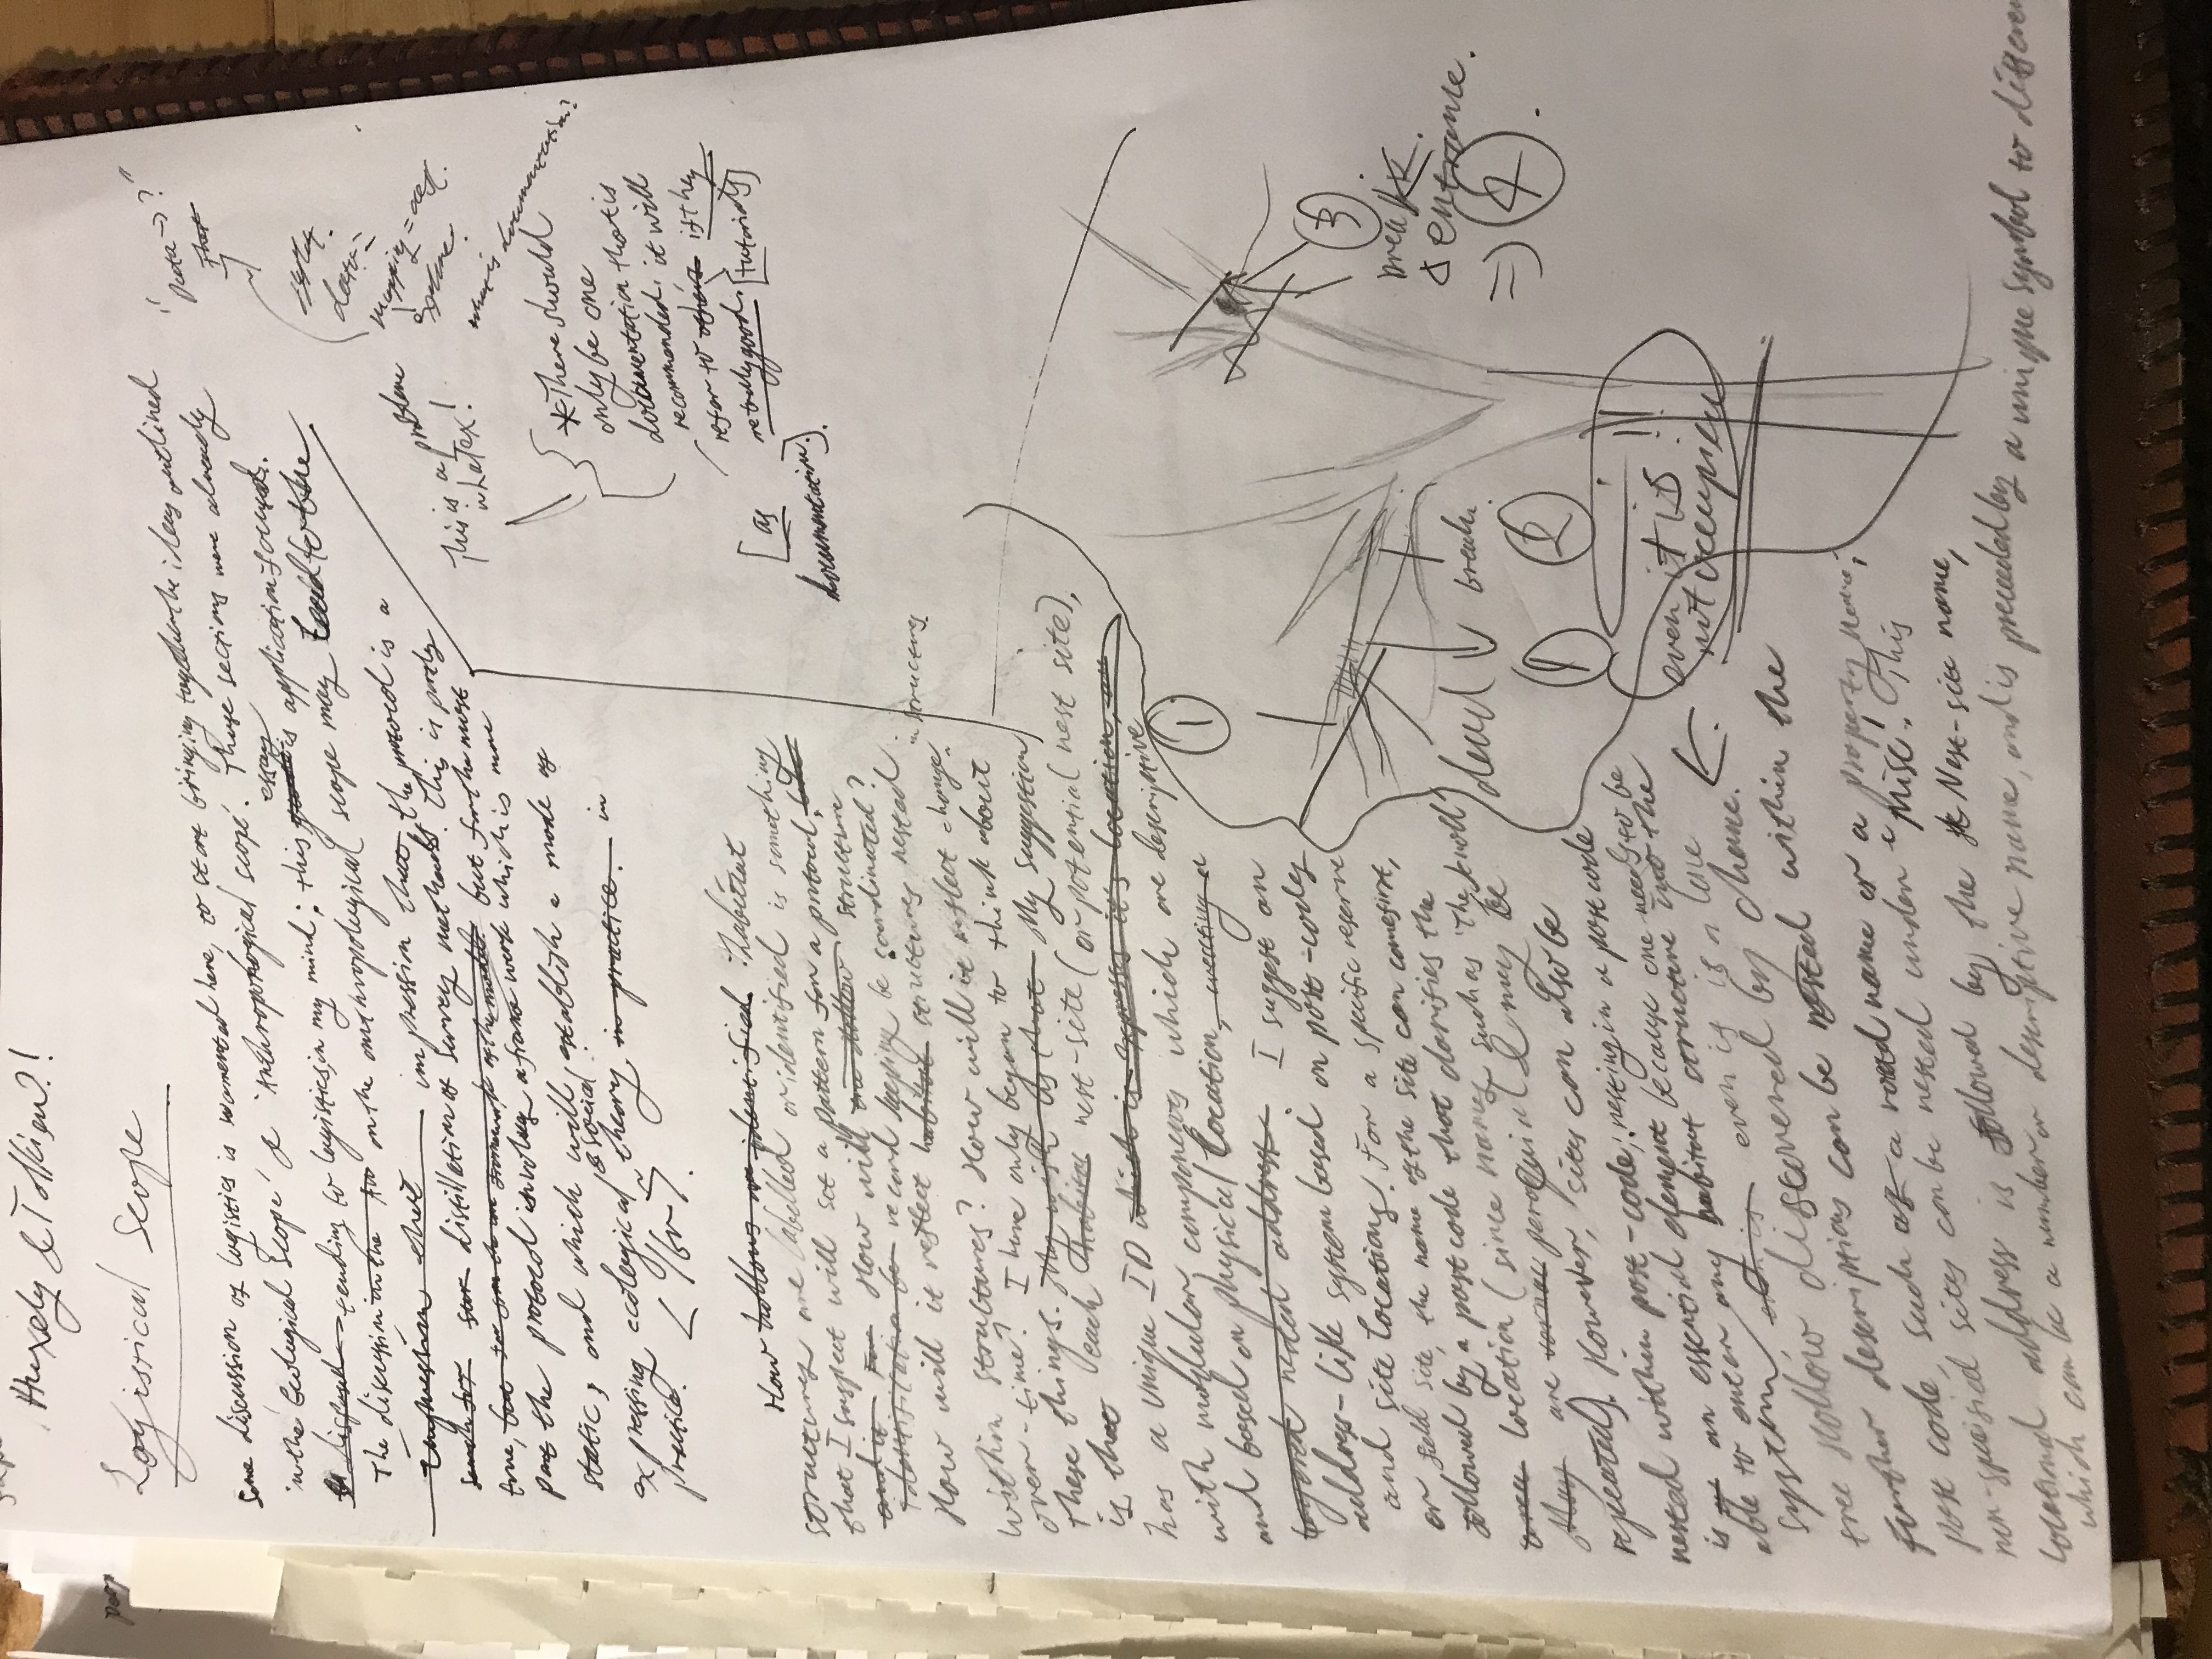 Huxely & Tolkien?!
Logistical Scope
Some discussion of logistics is warrented here, to start bringing together the ideas outlined
in the 'Ecological Scope' & 'Anthropological scope'. Those sections were already
tending to logistics, in my mind; this essay is application-focused.
The discussion on the anthropological scope may lead to the
impression that the protocol is a
distillation of survey methods. This is partly
true, but for the most
part the protocol involves a frame work which is more
static, and which will establish a mode of
expressing ecological & social theory in
practice. </br>.
How habitat
structures are labelled or identified is something
that I suspect will set a pattern for a protocol.
How will structure
record keeping be coordinated?
How will it reflect structures nested
within structures? How will it reflect change
in structures
over-time? I have only began to think about
these things. My suggestion
is that each nest-site (or potential nest site),
has a unique ID
with modular components which are descriptive
and based on physical location,
I suggest an
address-like system based on post-codes
and site locations. For a specific reserve
or field site, the name of the site can come first,
followed by a post code that clarifies the
location (since names such as 'The Knoll'
are peroquial & may be
repeated). However, sites can also be
nested within post-code; nesting in a post code
is an essential element because one needs to be
able to enter any habitat structure into the
system, even if is a lone
tree hollow discovered by chance.
Further descriptions can be nested within the
post code, such as a road name or a property name;
non-specified sites can be nested under 'Misc'. This
locational address is followed by the Nest-site name,
which can be a number or descriptive name, and is preceded by a unique symbol to differen
"Data → ?"
that
data =
mapping =
explore.
what is documentation?
This is a problem
in LaTex!
*There should
only be one
documentation that is
recommended. it will
refer to others if they
re truly good. [tutorials]
[as
documentation].
1
dead
break.
1
2
3
break
& entrance.
=> 4.
even if it is !!
not occupied
poop